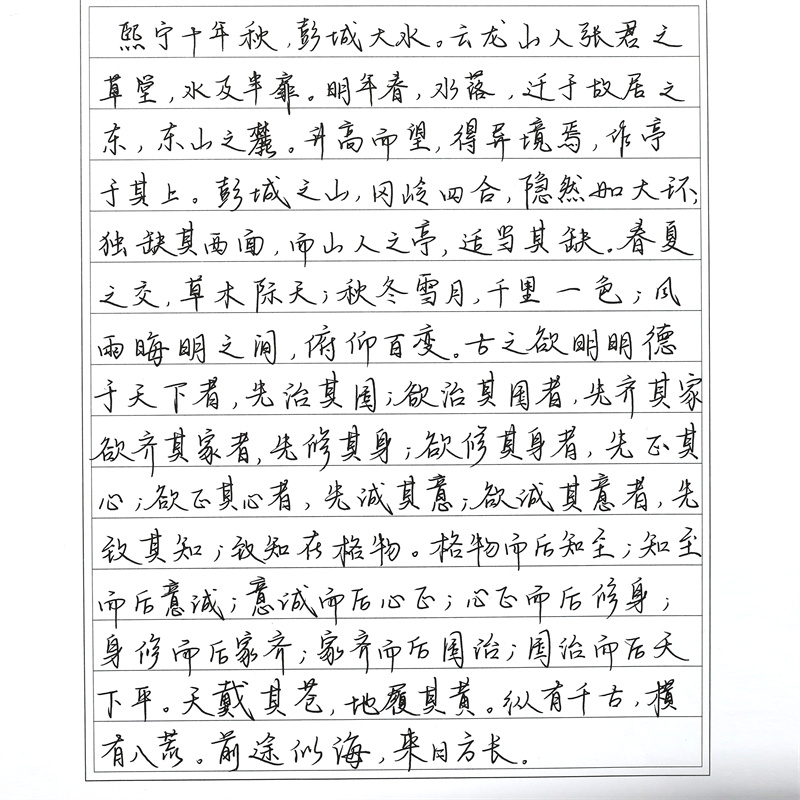 熙宁十年秋,彭城大水。云龙山人张君之
草堂,水及半扉。明年春,水落,迁于故居之
东,东山之麓。升高而望,得异境焉,作亭
于其上。彭城之山,冈岭四合,隐然如大环;
独缺其西面,而山人之亭,适当其缺。春夏
之交,草木际天;秋冬雪月,千里一色;风
雨晦明之间,俯仰百变。古之欲明明德
于天下者,先治其国;欲治其国者,先齐其家
欲齐其家者,先修其身;欲修其身者,先正其
心;欲正其心者,先诚其意;欲诚其意者,先
致其知;致知在格物。格物而后知至;知至
而后意诚;意诚而后心正;心正而后修身;
身修而后家齐;家齐而后国治;国治而后天
下平。天戴其苍,地履其黄。纵有千古,横
有八荒。前途似海,来日方长。